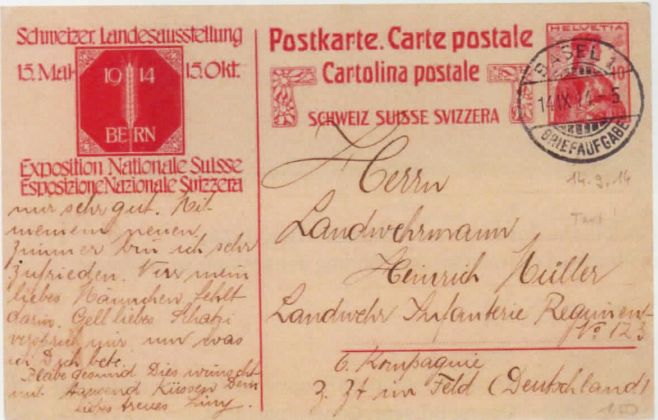 Schweizer. Landesausstellung
15. Mai 15. Okt.
1914
BERN
Exposition Nationale Suisse
Esposizione Nazionale Svizzera
nur sehr gut. Mit
meinem neuen
Zimmer bin ich sehr
zufrieden. Nur mein
liebes Männchen fehlt
darin. Gell liebes Schatzi
versprich mir, um was
ich Dich bete.
Bleibe gesund Dies wünscht
mit tausend Küssen Dein
liebes treues
Postkarte. Carte postale
Cartolina postale
SCHWEIZ SUISSE SVIZZERA
HELVETIA
10
BASEL 1
14.IX.14. 5
BRIEFAUFGABE
14.9.14
Text!
Herrn
Landwehrmann
Heinrich Müller
Landwehr Infanterie Regiment
No 123
6. Kompagnie
z. Zt im Feld (Deutschland)